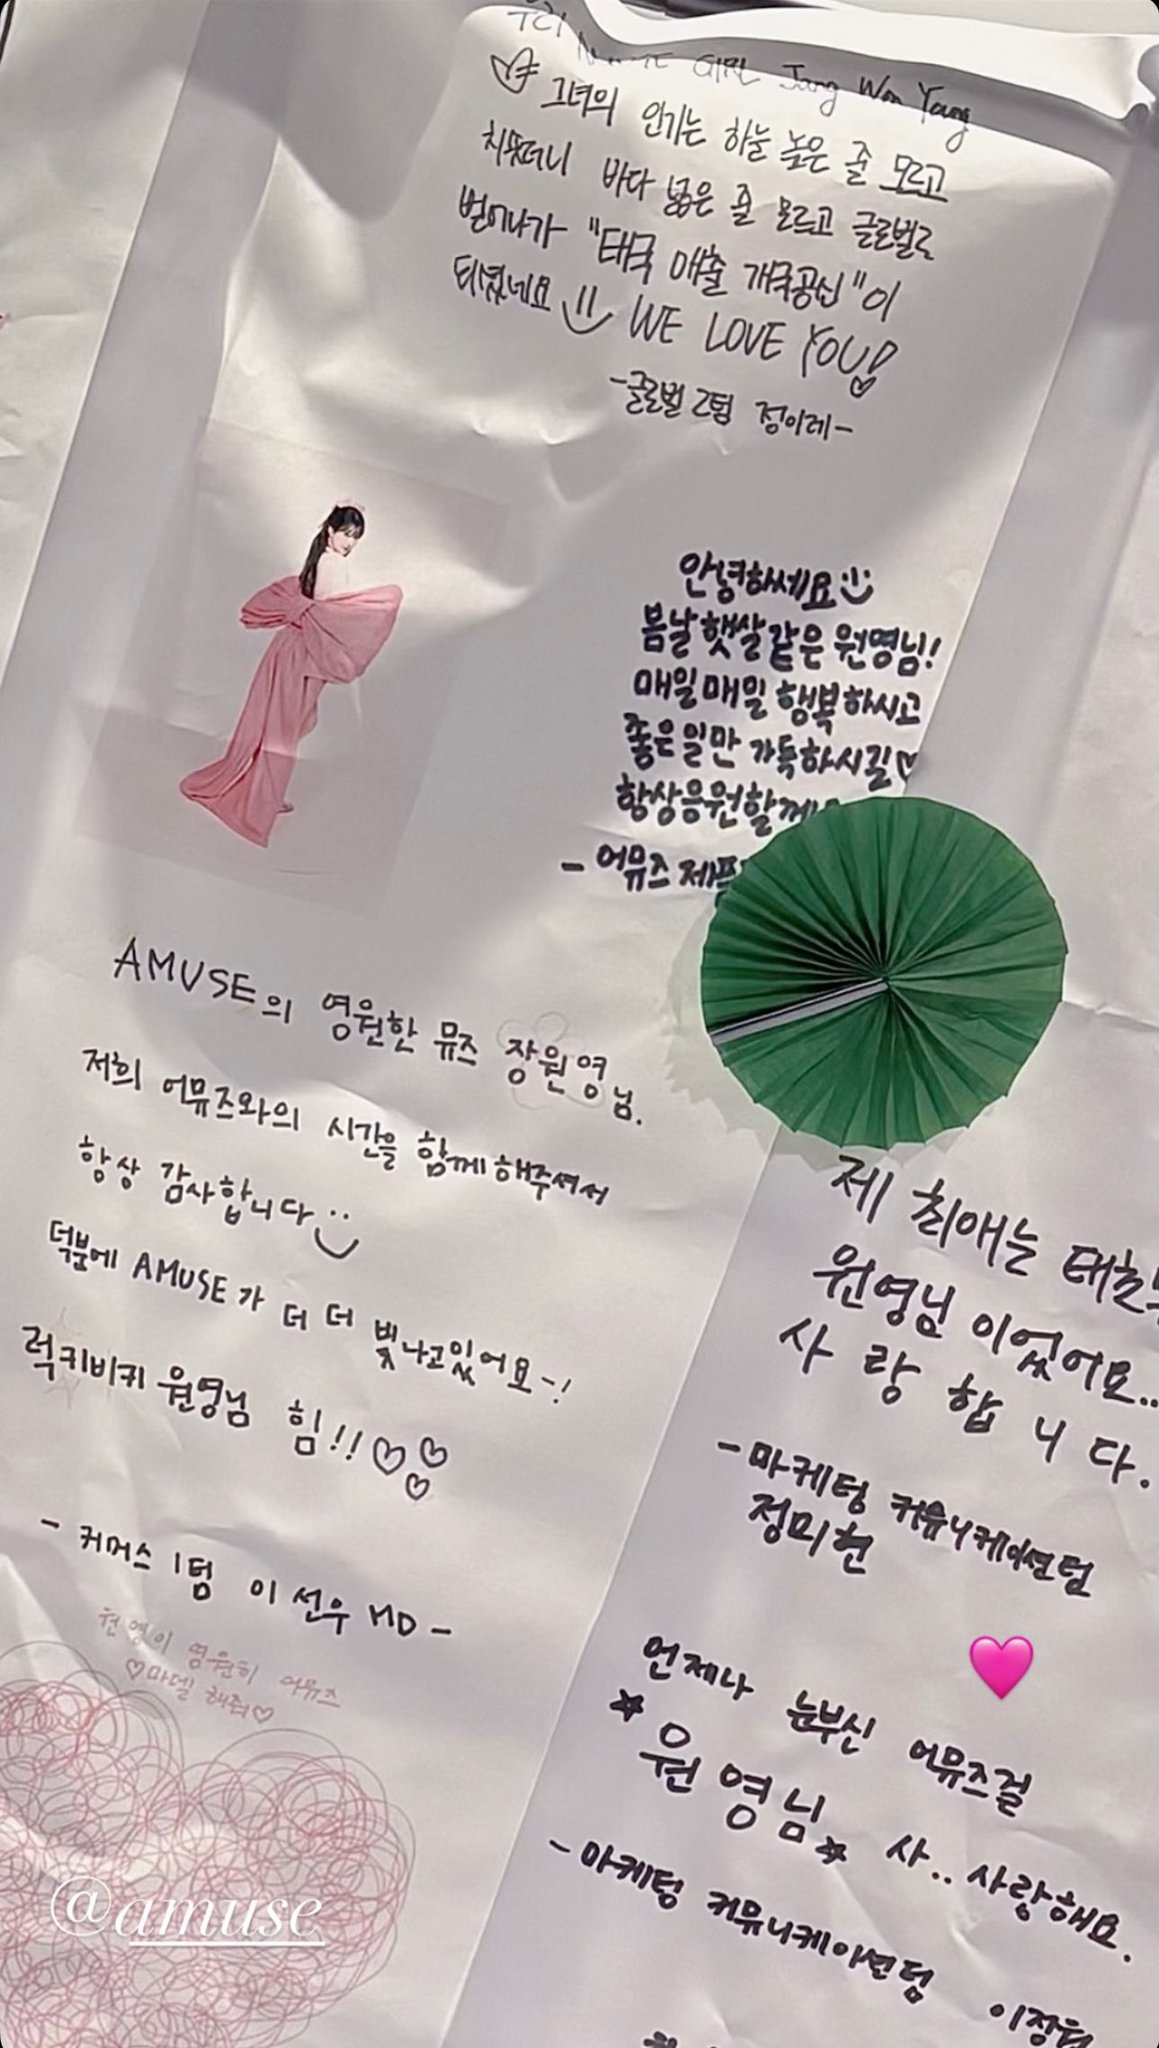 우리 AMUSE GIRL Jang Won Yang
그녀의 인기는 하늘 높은 줄 모르고
치솟더니 바다 넓은 줄 모르고 글로벌로
벋어나가 "태국 매출 개국공신"이
되셨네요 WE LOVE YOU!
-글로벌 2팀 정이레-
안녕하세요
봄날 햇살 같은 원영님!
매일매일 행복하시고
좋은일만 가득하시길♡
항상응원할께
- 어뮤즈 제품
AMUSE의 영원한 뮤즈 장원영님.
저희 어뮤즈와의 시간을 함께해주셔서
항상 감사합니다
덕분에 AMUSE가 더 더 빛나고있어요~!
럭키비키 원영님 힘!!♡♡♡
- 커머스 1팀 이선우 MD -
원영이 영원히 어뮤즈
♡마델 해줘♡
제 최애는 태초부
원영님 이었어요..
사랑합니다.
- 마케팅 커뮤니케이션팀
정미현
언제나 눈부신 어뮤즈걸
☆원영님☆ 사.. 사랑해요.
- 마케팅 커뮤니케이션팀 이장원
@amuse